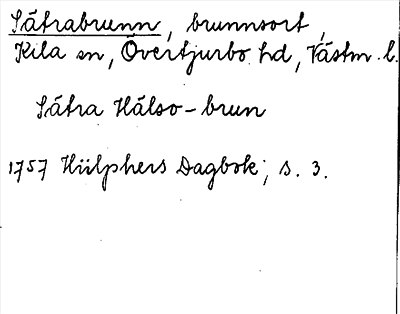 Sätrabrunn, brunnsort,
Kila sn, Övertjurbo hd, Västm. l.
Sätra Hälso-brun
1757 Hülphers Dagbok, s. 3.